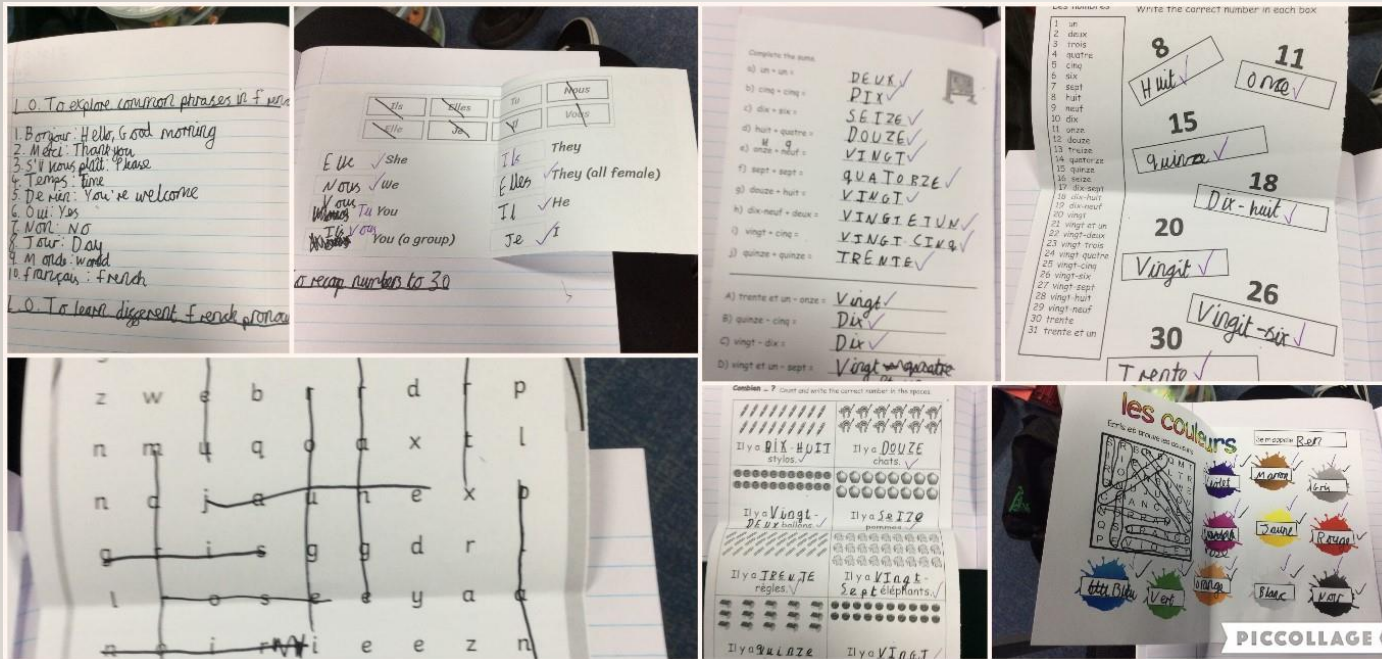 L.O. To explore common phrases in fren
1. Bonjour: Hello, Good morning
2. Merci: Thank you
3. S'il vous plaît: Please
4. Temps: time
5. De rien: You're welcome
6. Oui: Yes
7. Non: No
8. Jour: Day
9. Monde: world
10. français: french
L.O. To learn different french pronou
Ils Elles Tu Nous
Elle Je Il Vous
Elle She
Nous We
Tu You
Vous You (a group)
Ils They
Elles They (all female)
Il He
Je I
o recap numbers to 30
Complete the sums
a) un + un = DEUX
b) cinq + cinq = DIX
c) dix + six = SEIZE
d) huit + quatre = DOUZE
e) onze + neuf = VINGT
f) sept + sept = QUATORZE
g) douze + huit = VINGT
h) dix-neuf + deux = VINGT ET UN
i) vingt + cinq = VINGT CINQ
j) quinze + quinze = TRENTE
A) trente et un - onze = Vingt
B) quinze - cinq = Dix
C) vingt - dix = Dix
D) vingt et un - sept = Vingt
Les nombres
Write the correct number in each box
1 un
2 deux
3 trois
4 quatre
5 cinq
6 six
7 sept
8 huit
9 neuf
10 dix
11 onze
12 douze
13 treize
14 quatorze
15 quinze
16 seize
17 dix-sept
18 dix-huit
19 dix-neuf
20 vingt
21 vingt et un
22 vingt-deux
23 vingt-trois
24 vingt quatre
25 vingt-cinq
26 vingt-six
27 vingt-sept
28 vingt-huit
29 vingt-neuf
30 trente
31 trente et un
8
Huit
11
onze
15
quinze
18
Dix-huit
20
Vingit
26
Vingit-six
30
Trente
z w e b r r d r p
n m u q o a x t l
n a j a u n e x b
g r i s g g d r r
l r o s e e y a a
n o i r i e e z n
Combien ... ? Count and write the correct number in the spaces
Il y a DIX-HUIT stylos.
Il y a DOUZE chats.
Il y a Vingt-DEUX ballons
Il y a SeIZe pommes
Il y a TRENTE règles.
Il y a VIngt-Sept éléphants.
Il y a quinze
Il y a VIngT
les couleurs
Ecris et trouve les couleurs
Je m'appelle Ren
Violet
Marron
Gris
rose
Jaune
Rouge
Bleu
Vert
orange
Blanc
Noir
PICCOLLAGE